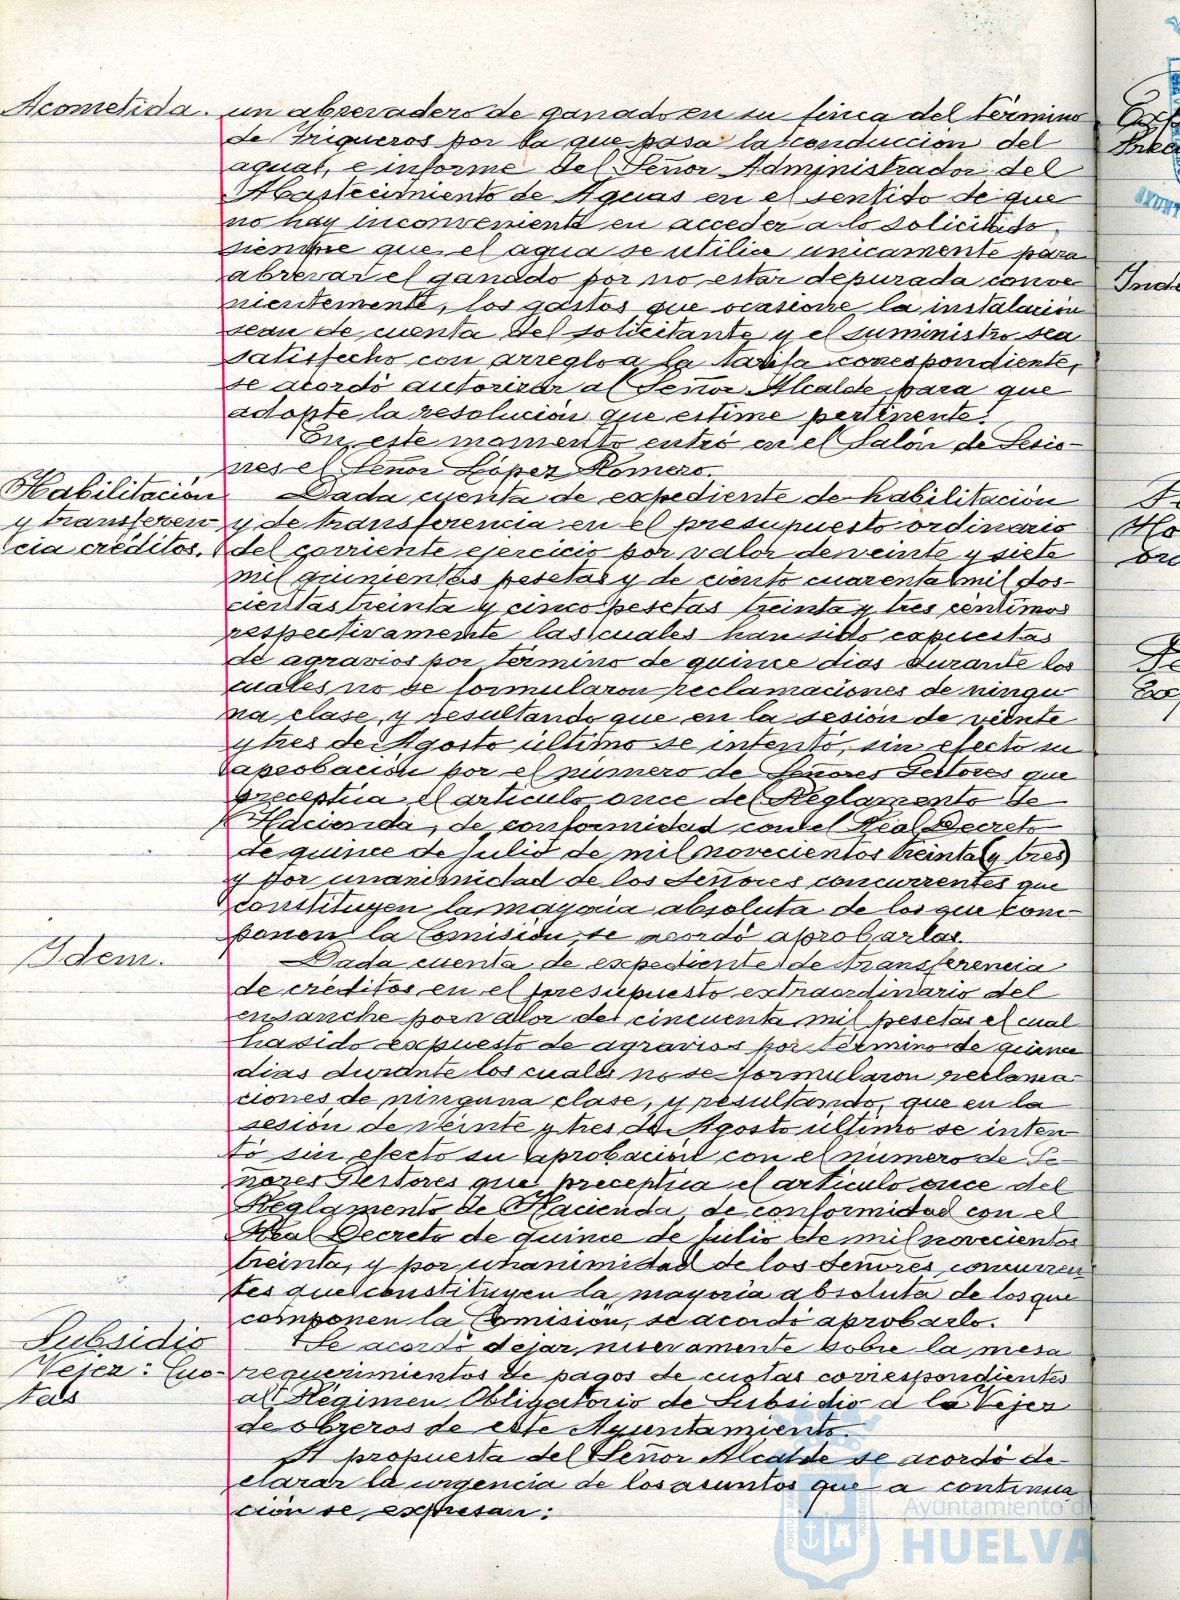 Acometida. un abrevadero de ganado en su finca del término
de Trigueros por la que pasa la conducción del
agua, e informe del Señor Administrador del
Abastecimiento de Aguas en el sentido de que
no hay inconveniente en acceder a lo solicitado,
siempre que el agua se utilice unicamente para
abrevar el ganado por no estar depurada conve
nientemente, los gastos que ocasione la instalación
sean de cuenta del solicitante y el suministro sea
satisfecho con arreglo a la tarifa correspondiente,
se acordó autorizar al Señor Alcalde para que
adopte la resolución que estime pertinente.
En este momento entró en el Salón de Sesio-
nes el Señor López Romero.
Habilitación Dada cuenta de expediente de habilitación
y transferen y de transferencia en el presupuesto ordinario
cia créditos. del corriente ejercicio por valor de veinte y siete
mil quinientas pesetas y de ciento cuarenta mil dos-
cientas treinta y cinco pesetas treinta y tres centimos
respectivamente las cuales han sido expuestas
de agravios por término de quince dias durante los
cuales no se formularon reclamaciones de ningu
na clase, y resultando que en la sesión de veinte
y tres de Agosto último se intentó, sin efecto su
aprobación por el número de Señores Gestores que
preceptúa el articulo once del Reglamento de
Hacienda, de conformidad con el Real Decreto
de quince de Julio de mil novecientos treinta (y tres)
y por unanimidad de los Señores concurrentes que
constituyen la mayoria absoluta de los que com-
ponen la Comisión, se acordó aprobarlas.
Idem. Dada cuenta de expediente de transferencia
de créditos en el presupuesto extraordinario del
ensanche por valor de cincuenta mil pesetas el cual
ha sido expuesto de agravios por término de quince
dias durante los cuales no se formularon reclama-
ciones de ninguna clase, y resultando, que en la
sesión de veinte y tres de Agosto último se inten-
tó sin efecto su aprobación con el número de Se-
ñores Gestores que preceptúa el articulo once del
Reglamento de Hacienda, de conformidad con el
Real Decreto de quince de Julio de mil novecientos
treinta, y por unanimidad de los Señores concurren
tes que constituyen la mayoria absoluta de los que
componen la Comisión, se acordó aprobarlo.
Subsidio Se acordó dejar nuevamente sobre la mesa
Vejez: Cuo- requerimientos de pagos de cuotas correspondientes
tas al Régimen Obligatorio de Subsidio a la Vejez
de obreros de este Ayuntamiento.
A propuesta del Señor Alcalde se acordó de-
clarar la urgencia de los asuntos que a continua
ción se expresan:
Ayuntamiento de
HUELVA